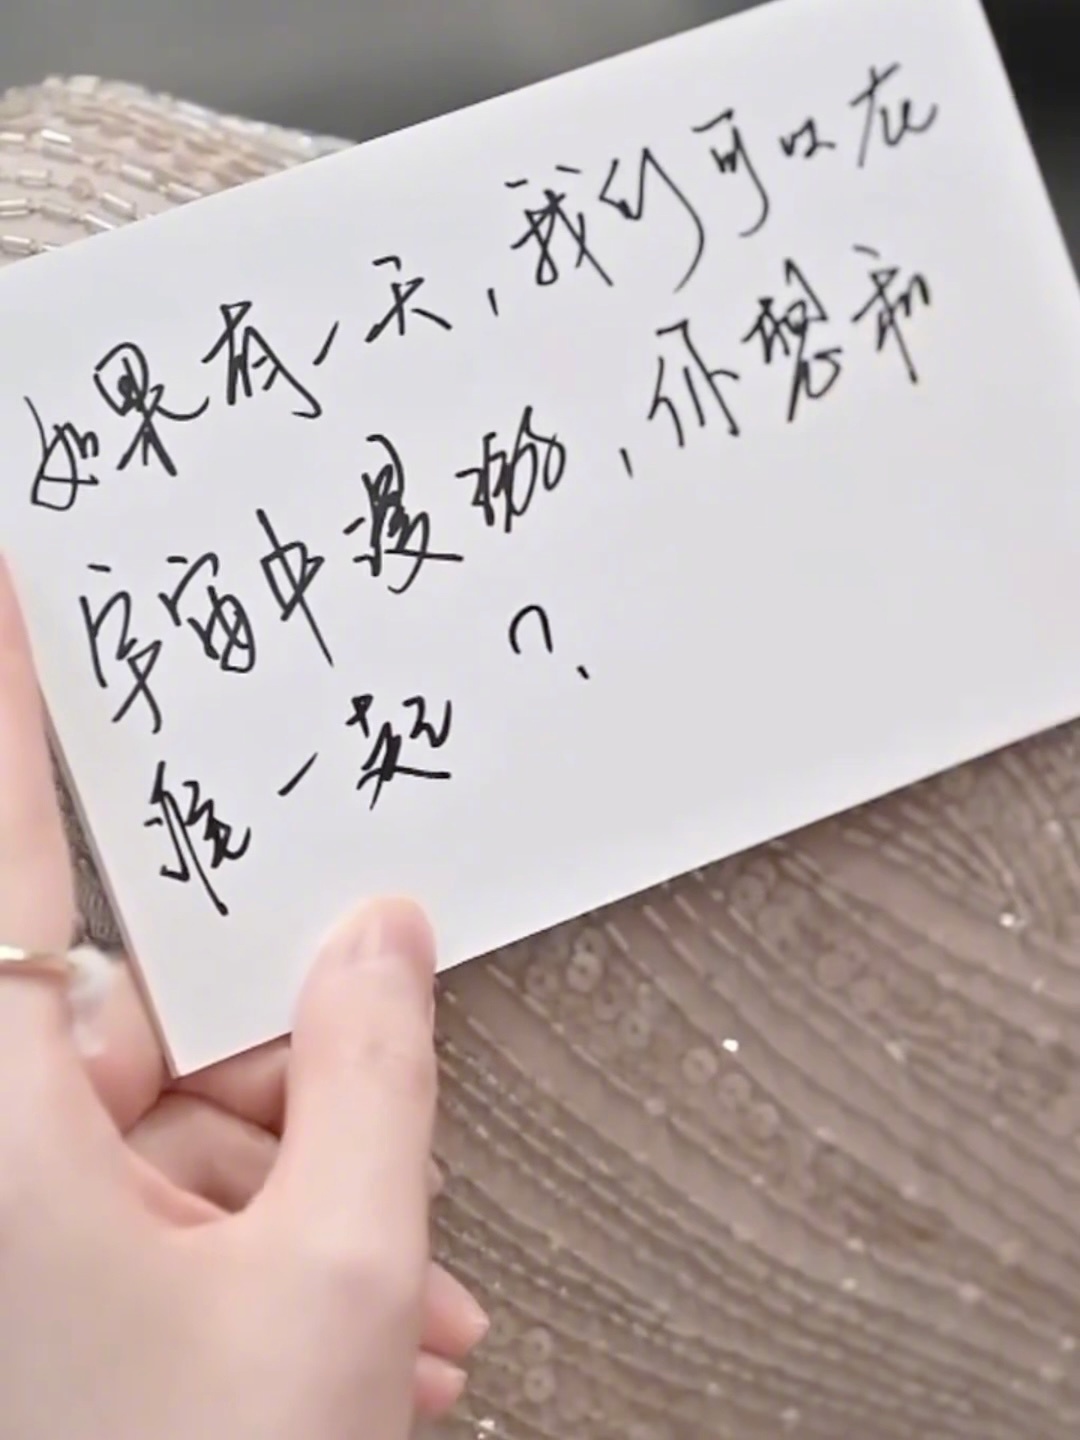 如果有一天，我们可以在
宇宙中漫游，你想和
谁一起？